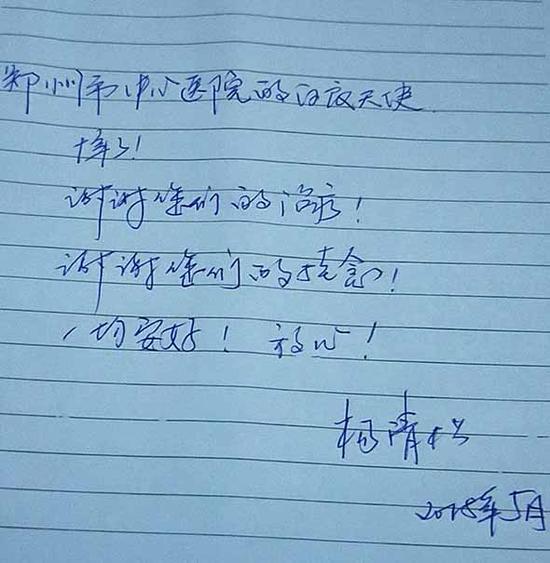 郑州市中心医院的白衣天使
谢谢您们的治疗！
谢谢您们的挂念！
一切安好！放心！
杨清
5月